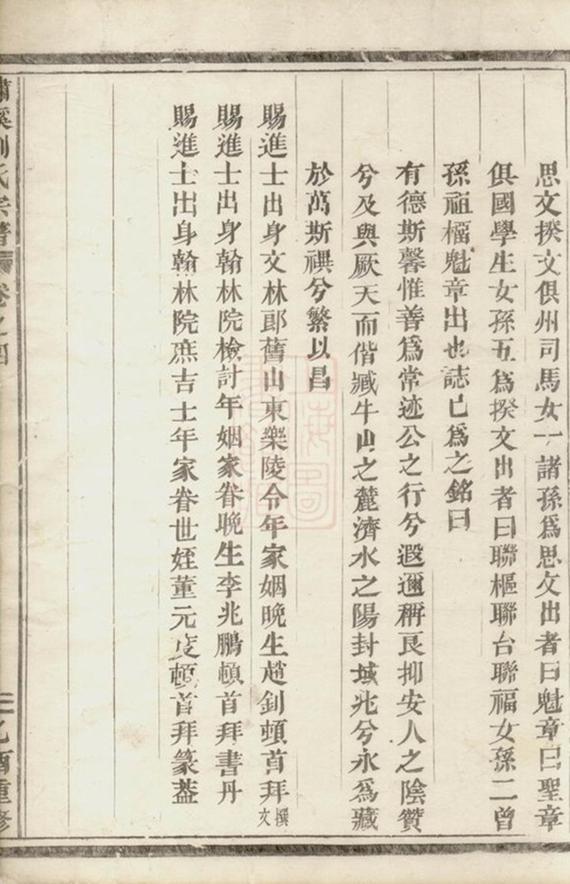 思文揆文俱州司馬女一諸孫爲思文出者曰魁章曰聖章
俱國學生女孫五爲揆文出者曰聯樞聯台聯福女孫二曾
孫祖楅魁章出也誌已爲之銘曰
有德斯馨惟善爲常迹公之行兮遐邇稱良抑安人之陰贊
兮及與厥天而偕臧牛山之麓濟水之陽封域兆兮永爲藏
於萬斯禩兮繁以昌
賜進士出身文林郎舊山東樂陵令年家姻晚生趙釗頓首拜撰文
賜進士出身翰林院檢討年姻家眷晚生李兆鵬頓首拜書丹
賜進士出身翰林院庶吉士年家眷世姪董元度頓首拜篆葢
劉氏宗譜 卷之四
乙酉重修